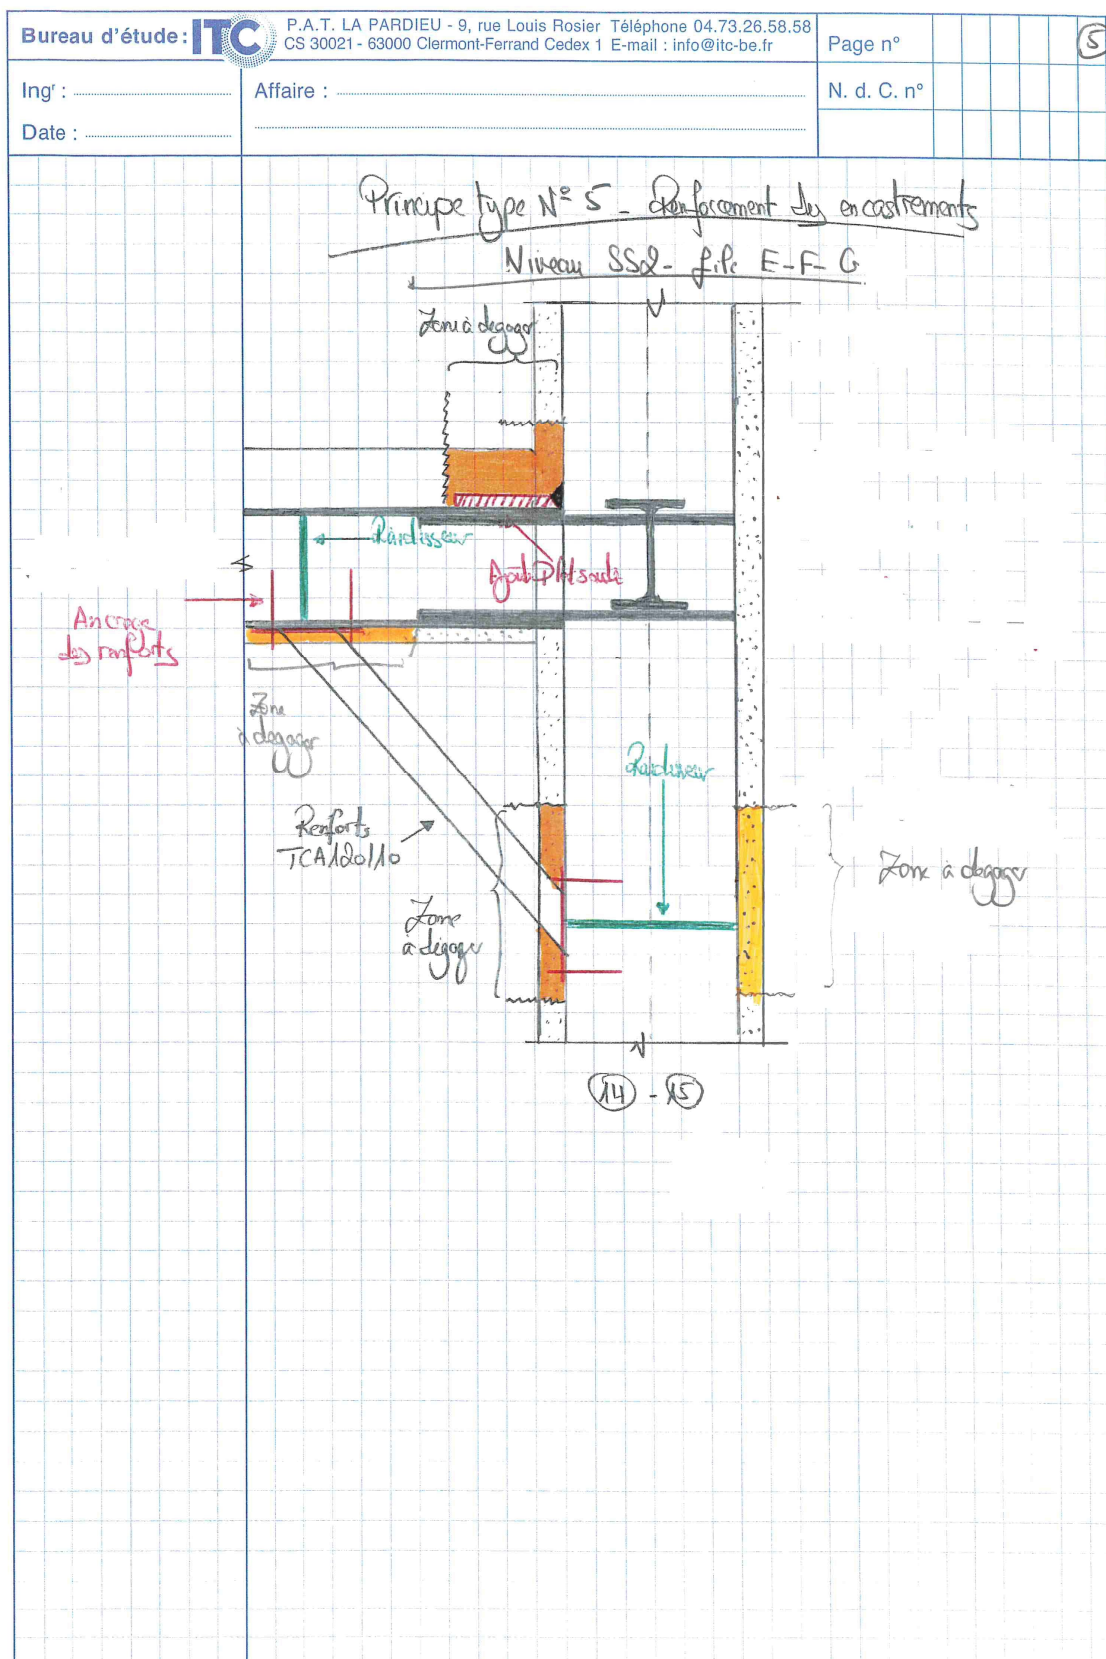 Bureau d'étude : ITC
P.A.T. LA PARDIEU - 9, rue Louis Rosier Téléphone 04.73.26.58.58
CS 30021 - 63000 Clermont-Ferrand Cedex 1 E-mail : info@itc-be.fr
Page n°
5
Ingr :
Affaire :
N. d. C. n°
Date :
Principe type N° 5 - Renforcement des encastrements
Niveau SS2 - file E-F-G
Zone à degager
Raidisseur
Ajout Plat soudé
Ancrage
des renforts
Zone
à degager
Raidisseur
Renforts
TCA120/10
Zone à degager
Zone
à dégager
14 - 15